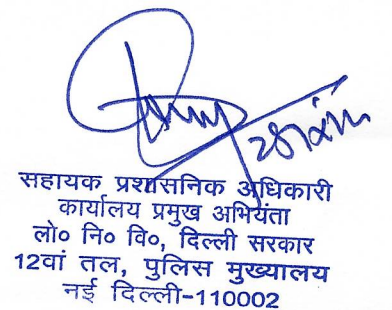 सहायक प्रशासनिक अधिकारी
कार्यालय प्रमुख अभियंता
लो० नि० वि०, दिल्ली सरकार
12वां तल, पुलिस मुख्यालय
नई दिल्ली-110002